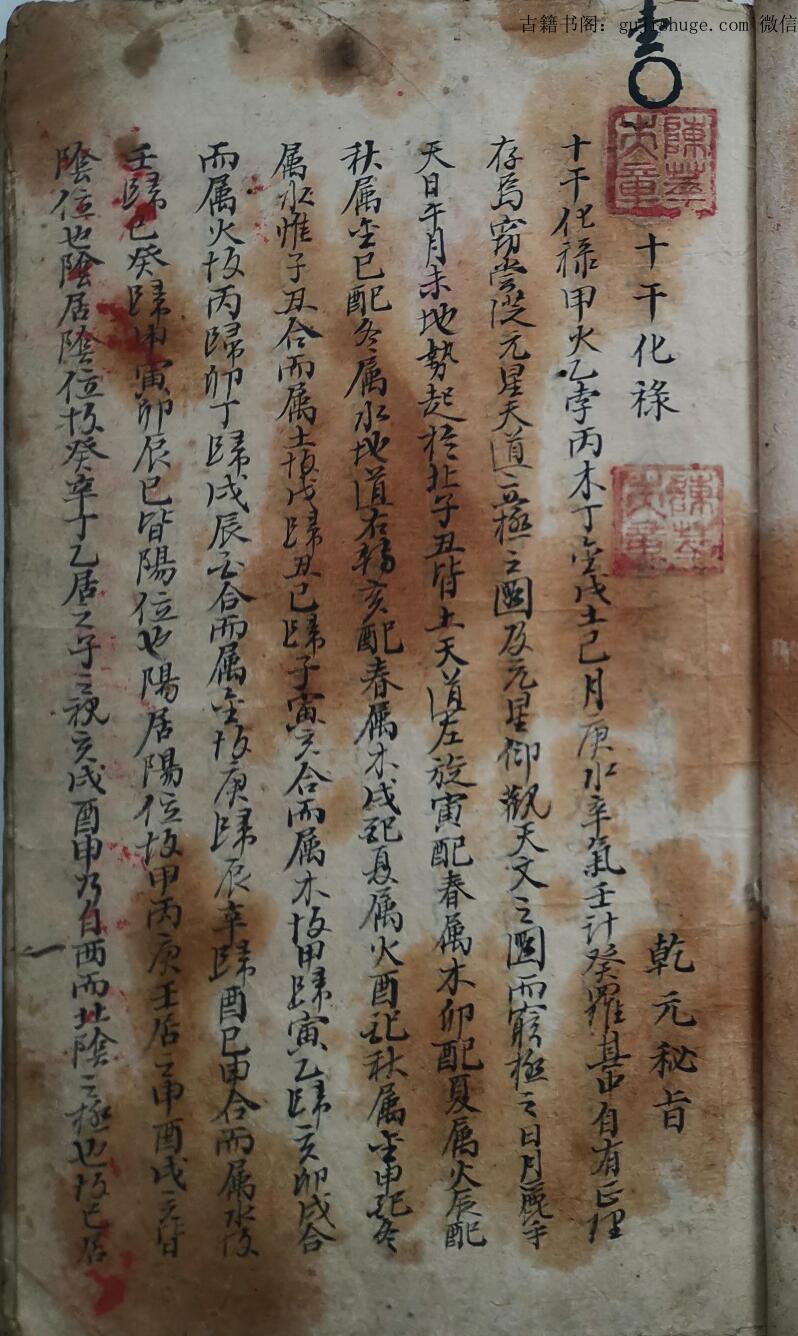 古籍书阁：gujishuge.com 微信
十干化祿
乾元秘旨
十干化祿甲火乙孛丙木丁金戊土己月庚水辛氣壬計癸羅其中自有正理
存焉窃尝從元星天道立極之圖及元星仰觀天文之圖而窮極之日月麗乎
天日午月未地勢起於北子丑皆土天道左旋寅配春属木卯配夏属火辰配
秋属金巳配冬属水地道右轉亥配春属木戌配夏属火酉配秋属金申配冬
属水惟子丑合而属土故戊歸丑己歸子寅亥合而属木故甲歸寅乙歸亥卯戌合
而属火故丙歸卯丁歸戌辰酉合而属金故庚歸辰辛歸酉巳申合而属水故
壬歸巳癸歸申寅卯辰巳皆陽位也陽居陽位故甲丙庚壬居之申酉戌亥皆
陰位也陰居陰位故癸辛丁乙居之子之視亥戌酉申乃自西而北陰之極也故己居